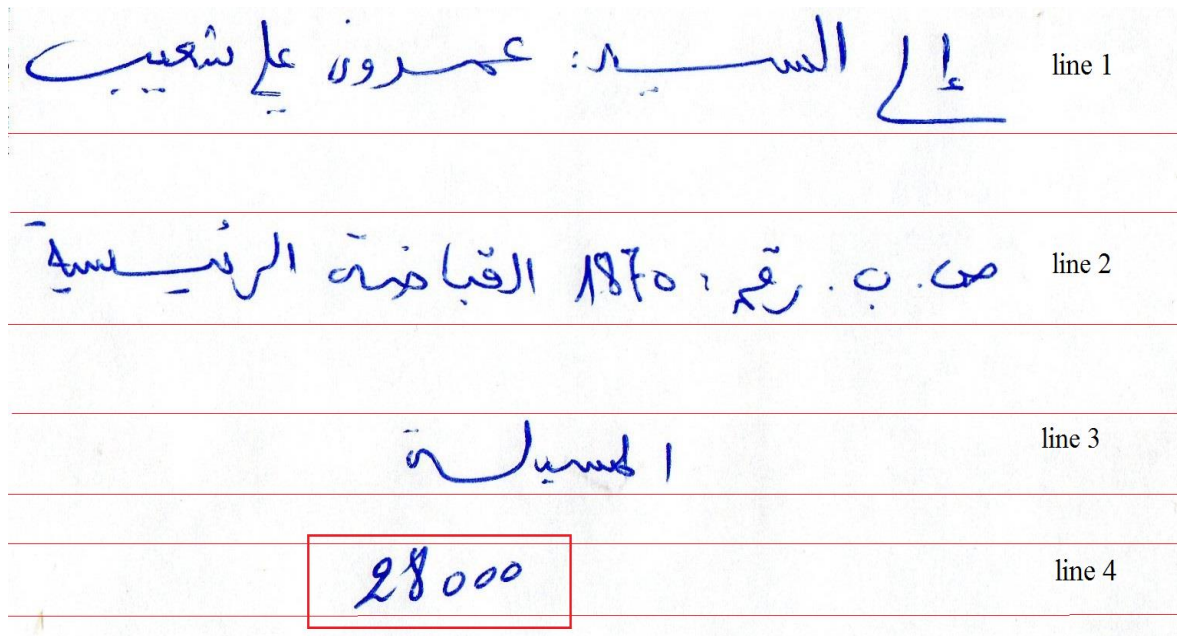 إلى السيد: عمرون علي شعيب line 1
ص. ب. رقم: 1870 القباضة الرئيسية line 2
المسيلة line 3
28000 line 4